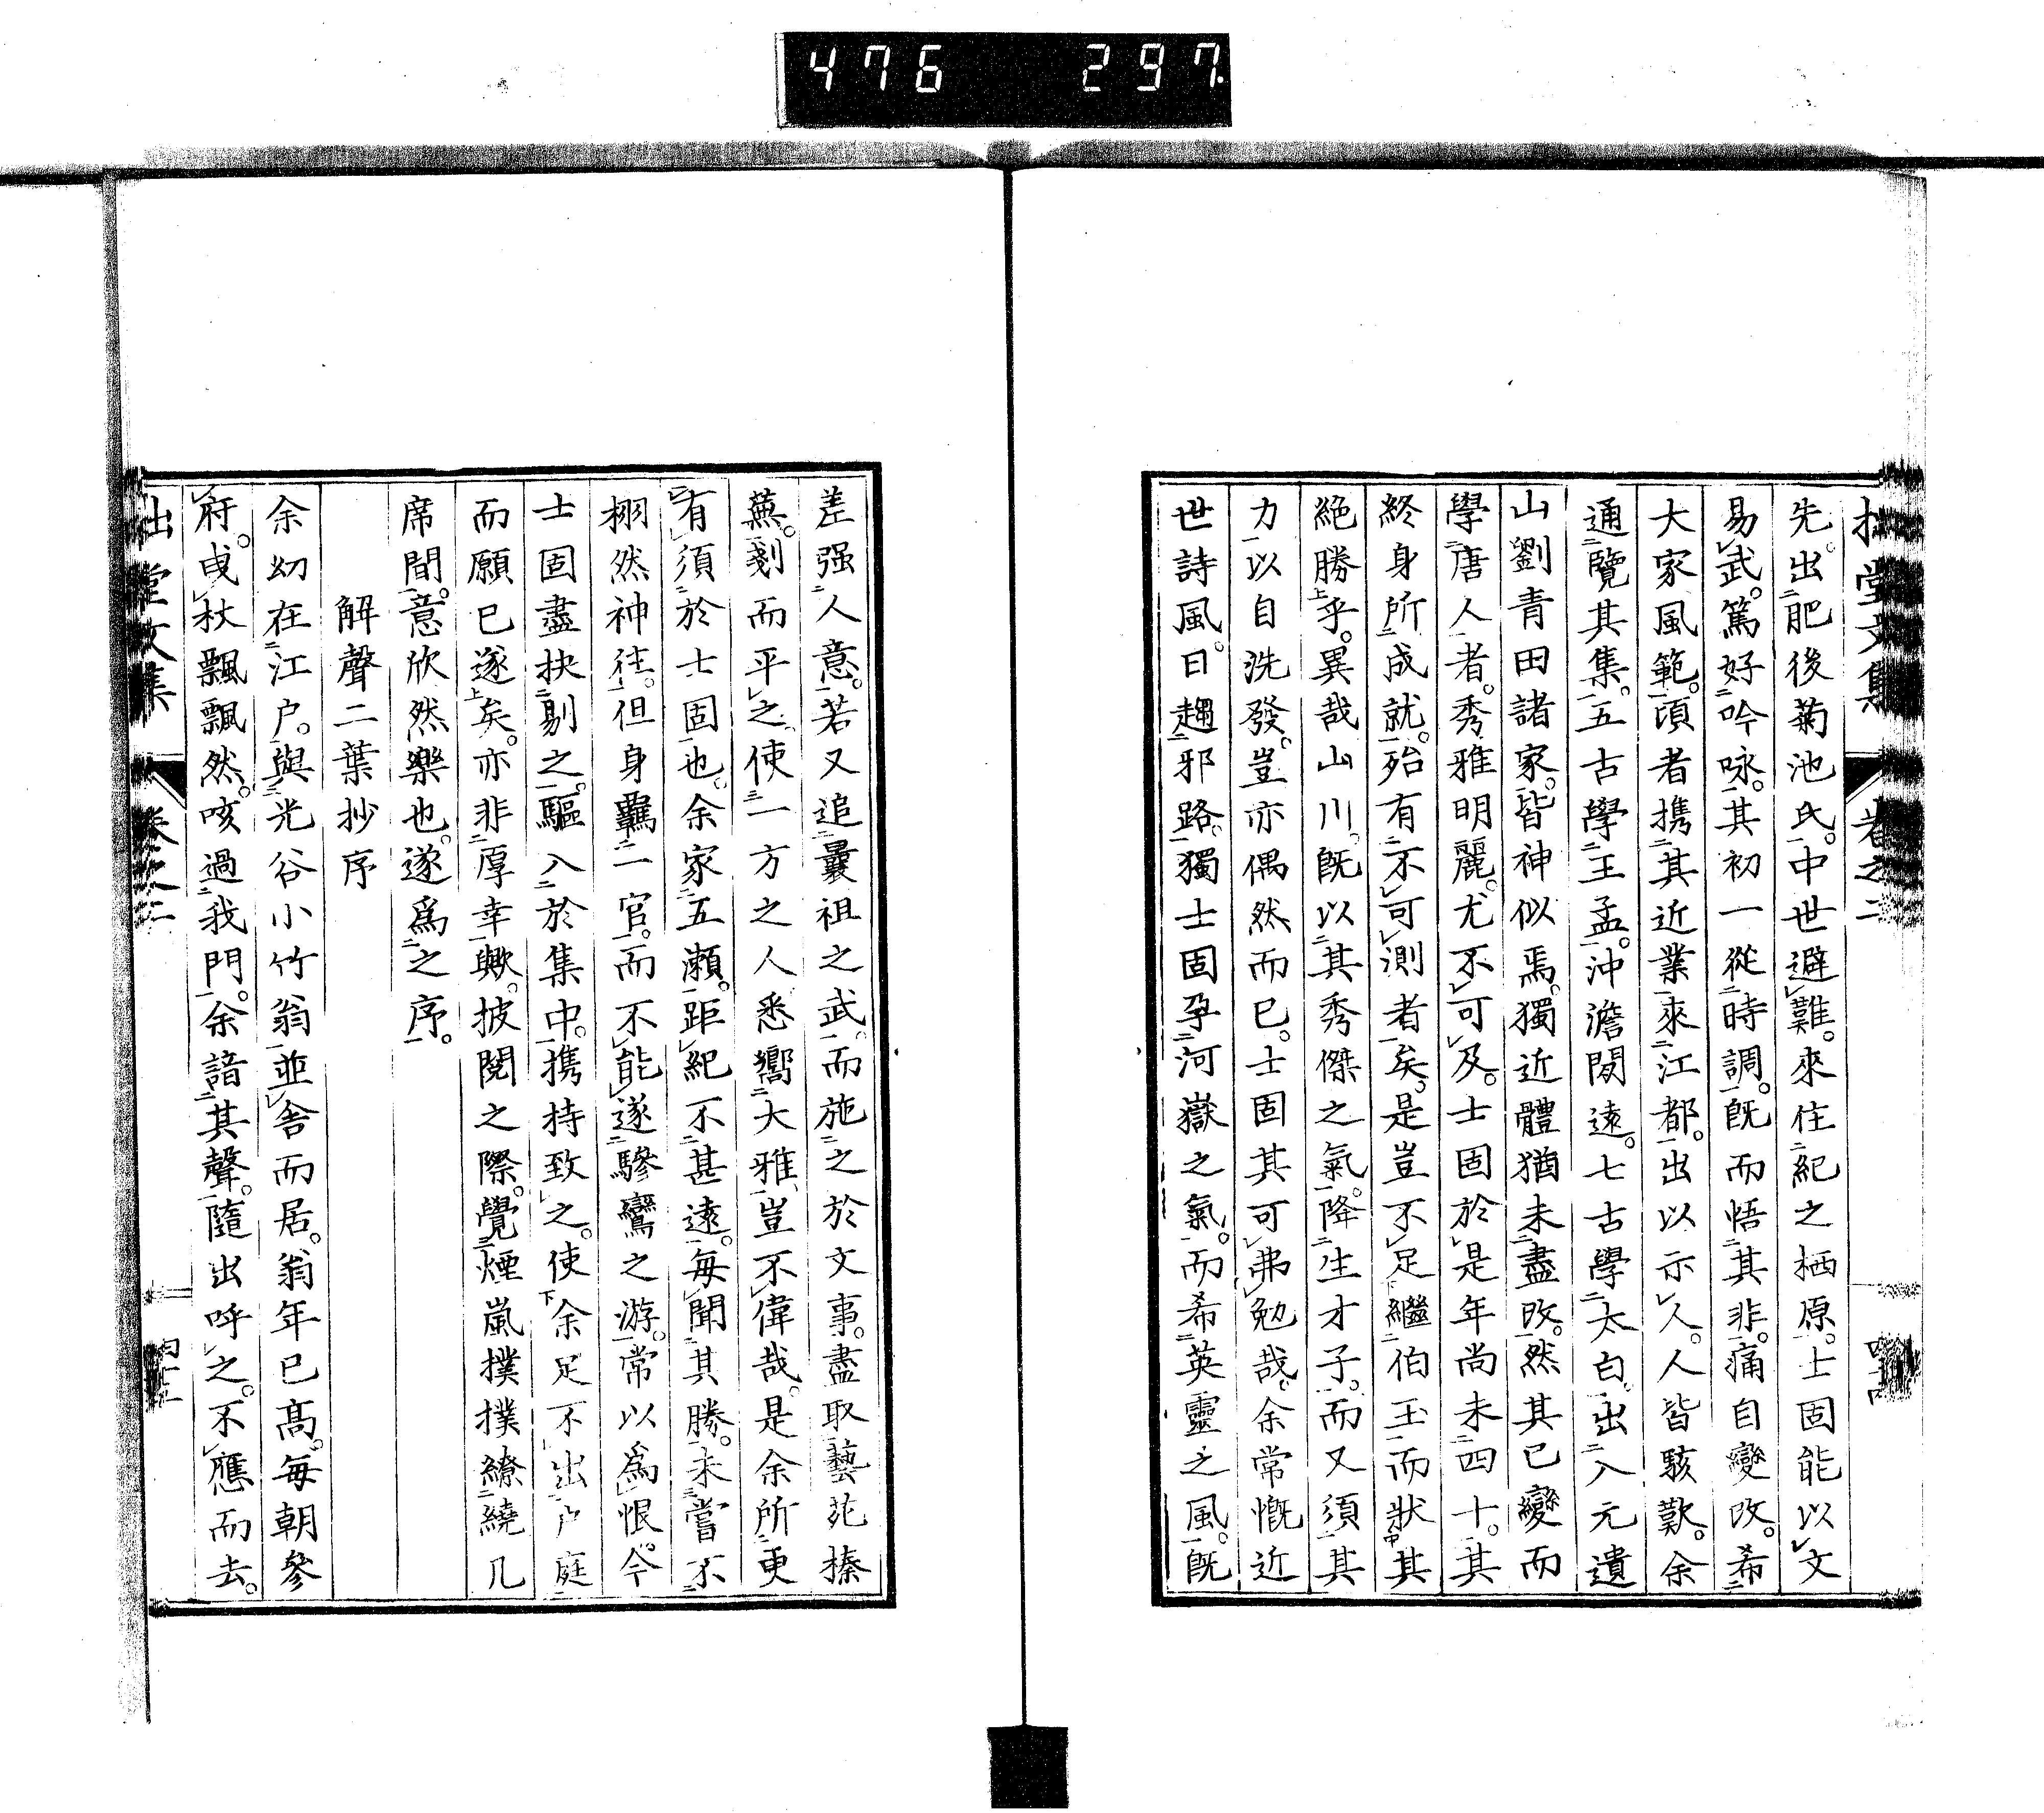 476 297
拙堂文集 卷之二
先。出肥後菊池氏。中世避難。來住紀之栖原。士固能以文
易武。篤好吟咏。其初一從時調。既而悟其非。痛自變改。希
大家風範。頃者携其近業來江都。出以示人。人皆駭歎。余
通覽其集。五古學王孟。沖澹閑遠。七古學太白。出入元遺
山劉青田諸家。皆神似焉。獨近體猶未盡改。然其已變而
學唐人者。秀雅明麗。尤不可及。士固於是年尚未四十。其
終身所成就。殆有不可測者矣。是豈不足繼伯玉而狀其
絶勝乎。異哉山川。既以其秀傑之氣。降生才子。而又須其
力以自洗發。豈亦偶然而已。士固其可弗勉哉。余常慨近
世詩風。日趨邪路。獨士固孕河嶽之氣。而希英靈之風。既
差强人意。若又追曩祖之武。而施之於文事。盡取藝苑榛
蕪。剗而平之。使一方之人悉嚮大雅。豈不偉哉。是余所更
有須於士固也。余家五瀬。距紀不甚遠。每聞其勝。未嘗不
栩然神往。但身羈一官。而不能遂驂鸞之游。常以爲恨。今
士固盡抉剔之。驅入於集中。携持致之。使余足不出戸庭
而願已遂矣。亦非厚幸歟。披閲之際。覺煙嵐撲撲繚繞几
席間。意欣然樂也。遂爲之序。
解聲二葉抄序
余幼在江戸。與光谷小竹翁並舍而居。翁年已高。每朝參
府。曳杖飄飄然。咳過我門。余諳其聲。隨出呼之。不應而去。
拙堂文集 卷之二